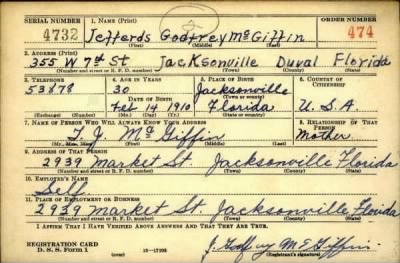 SERIAL NUMBER 1. NAME (Print) ORDER NUMBER
4732 Jefferds Godfrey McGiffin 474
(First) (Middle) (Last)
2. ADDRESS (Print)
355 W 7th St Jacksonville Duval Florida
(Number and street or R. F. D. number) (Town) (County) (State)
3. TELEPHONE 4. AGE IN YEARS 5. PLACE OF BIRTH 6. COUNTRY OF CITIZENSHIP
53878 30 Jacksonville
DATE OF BIRTH (Town or county)
Feb 14 1910 Florida U.S.A.
(Mo.) (Day) (Yr.) (State or country)
7. NAME OF PERSON WHO WILL ALWAYS KNOW YOUR ADDRESS 8. RELATIONSHIP OF THAT PERSON
T. J. McGiffin Mother
(Mr., Mrs., Miss) (First) (Middle) (Last)
9. ADDRESS OF THAT PERSON
2939 Market St. Jacksonville Florida
(Number and street or R. F. D. number) (Town) (County) (State)
10. EMPLOYER'S NAME
Self
11. PLACE OF EMPLOYMENT OR BUSINESS
2939 Market St. Jacksonville Florida
(Number and street or R. F. D. number) (Town) (County) (State)
I AFFIRM THAT I HAVE VERIFIED ABOVE ANSWERS AND THAT THEY ARE TRUE.
REGISTRATION CARD
D. S. S. Form 1 (over) 16—17105 J. Godfrey McGiffin
(Registrant's signature)